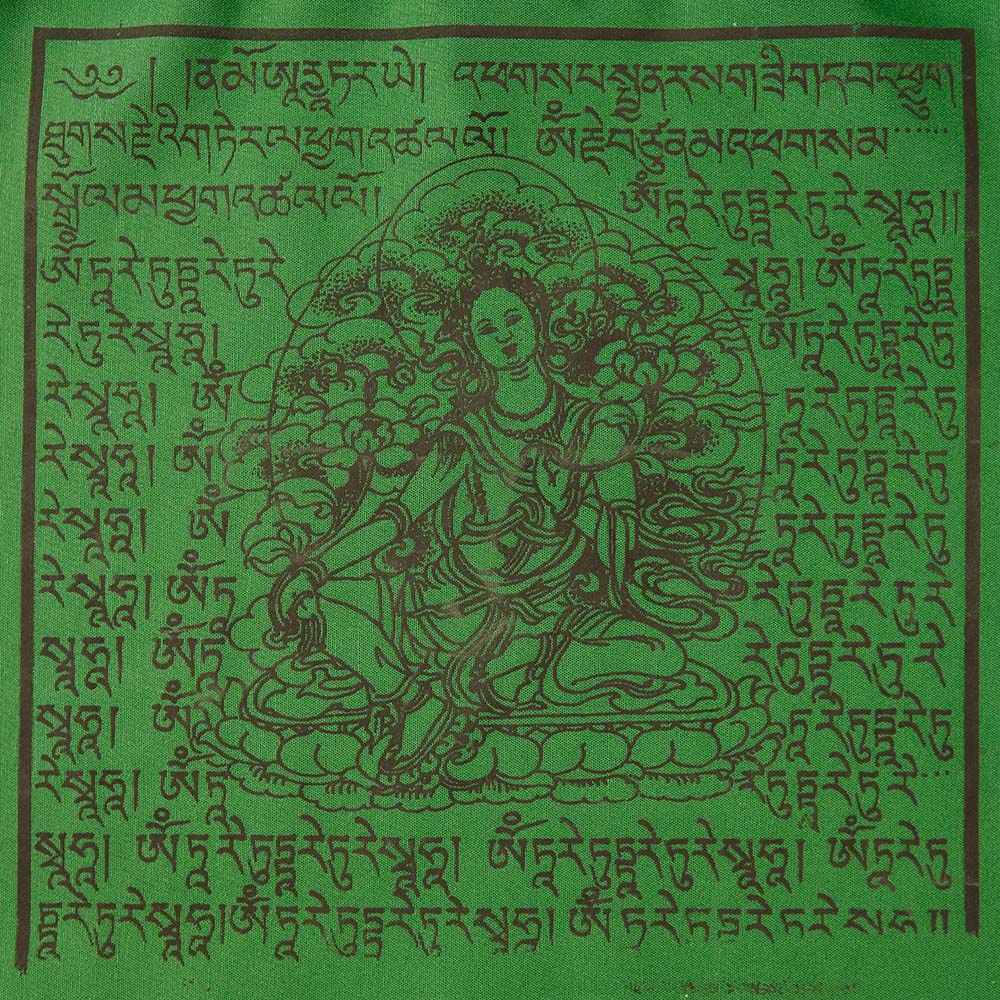 ༄༅། །ན་མོ་ཨཱརྱ་ཏཱ་ར་ཡེ། འཕགས་པ་སྤྱན་རས་གཟིགས་དབང་ཕྱུག
ཐུགས་རྗེའི་གཏེར་ལ་ཕྱག་འཚལ་ལོ། ཨོཾ་རྗེ་བཙུན་མ་འཕགས་མ
སྒྲོལ་མ་ཕྱག་འཚལ་ལོ། ཨོཾ་ཏཱ་རེ་ཏུཏྟཱ་རེ་ཏུ་རེ་སྭཱ་ཧཱ།།
ཨོཾ་ཏཱ་རེ་ཏུཏྟཱ་རེ་ཏུ་རེ་ སྭཱ་ཧཱ། ཨོཾ་ཏཱ་རེ་ཏུཏྟཱ་
རེ་ཏུ་རེ་སྭཱ་ཧཱ། ཨོཾ་ཏཱ་རེ་ཏུཏྟཱ་རེ་ཏུ་
རེ་སྭཱ་ཧཱ། ཨོཾ་ ཏཱ་རེ་ཏུཏྟཱ་རེ་ཏུ་
རེ་སྭཱ་ཧཱ། ཨོཾ་ ཏཱ་རེ་ཏུཏྟཱ་རེ་ཏུ་
རེ་སྭཱ་ཧཱ། ཨོཾ་ ཏཱ་རེ་ཏུཏྟཱ་རེ་ཏུ་
རེ་སྭཱ་ཧཱ། ཨོཾ་ཏཱ་ རེ་ཏུཏྟཱ་རེ་ཏུ་རེ་
སྭཱ་ཧཱ། ཨོཾ་ཏཱ་ རེ་ཏུཏྟཱ་རེ་ཏུ་རེ་
སྭཱ་ཧཱ། ཨོཾ་ ཏཱ་རེ་ཏུཏྟཱ་རེ་ཏུ་
རེ་སྭཱ་ཧཱ། ཨོཾ་ཏཱ་ རེ་ཏུཏྟཱ་རེ་ཏུ་རེ་
སྭཱ་ཧཱ། ཨོཾ་ཏཱ་རེ་ཏུཏྟཱ་རེ་ཏུ་རེ་སྭཱ་ཧཱ། ཨོཾ་ཏཱ་རེ་ཏུཏྟཱ་རེ་ཏུ་རེ་སྭཱ་ཧཱ། ཨོཾ་ཏཱ་རེ་ཏུ
ཏྟཱ་རེ་ཏུ་རེ་སྭཱ་ཧཱ།ཨོཾ་ཏཱ་རེ་ཏུཏྟཱ་རེ་ཏུ་རེ་སྭཱ་ཧཱ། ཨོཾ་ཏཱ་རེ་ཏུཏྟཱ་རེ་ཏུ་རེ་སྭཱ་ཧཱ།།